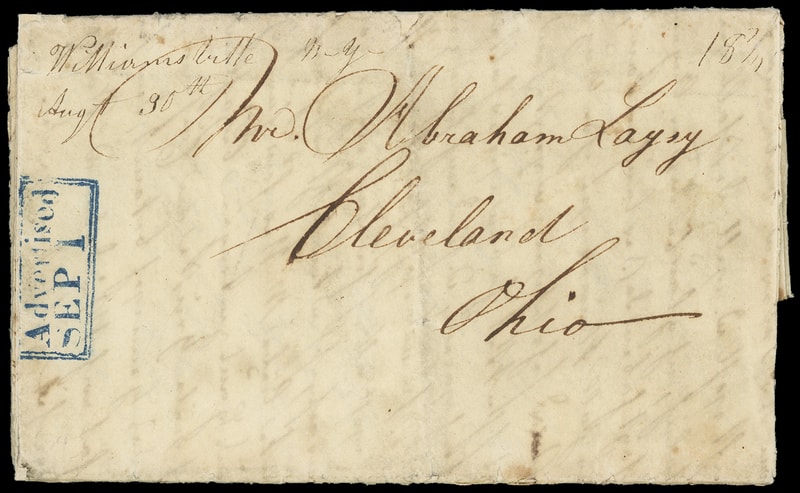 Williamsville N Y
Augt 30th
18¾
Mr. Abraham Laysy
Cleveland
Ohio
Advertised
SEP 1